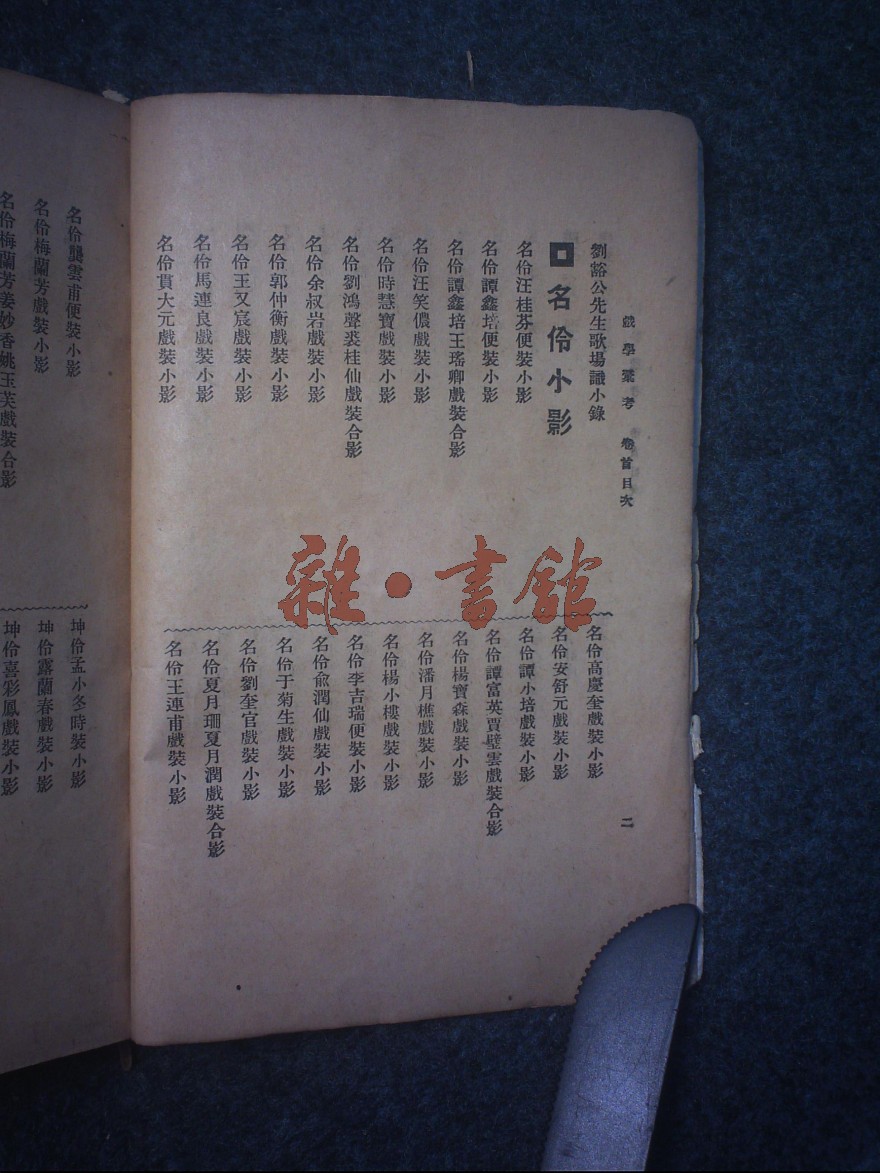 戲學彙考　卷首目次
二
劉豁公先生歌場識小錄
名伶小影
名伶汪桂芬便裝小影
名伶譚鑫培便裝小影
名伶譚鑫培王瑤卿戲裝合影
名伶汪笑儂戲裝小影
名伶時慧寶戲裝小影
名伶劉鴻聲裘桂仙戲裝合影
名伶余叔岩戲裝小影
名伶郭仲衡戲裝小影
名伶王又宸戲裝小影
名伶馬連良戲裝小影
名伶貫大元戲裝小影
名伶高慶奎戲裝小影
名伶安舒元戲裝小影
名伶譚小培戲裝小影
名伶譚富英賈璧雲戲裝合影
名伶楊寶森戲裝小影
名伶潘月樵戲裝小影
名伶楊小樓戲裝小影
名伶李吉瑞便裝小影
名伶俞潤仙戲裝小影
名伶于菊生戲裝小影
名伶劉奎官戲裝小影
名伶夏月珊夏月潤戲裝合影
名伶王連甫戲裝小影
名伶龔雲甫便裝小影
名伶梅蘭芳戲裝小影
名伶梅蘭芳姜妙香姚玉芙戲裝合影
坤伶孟小冬時裝小影
坤伶露蘭春戲裝小影
坤伶喜彩鳳戲裝小影
雜·書館